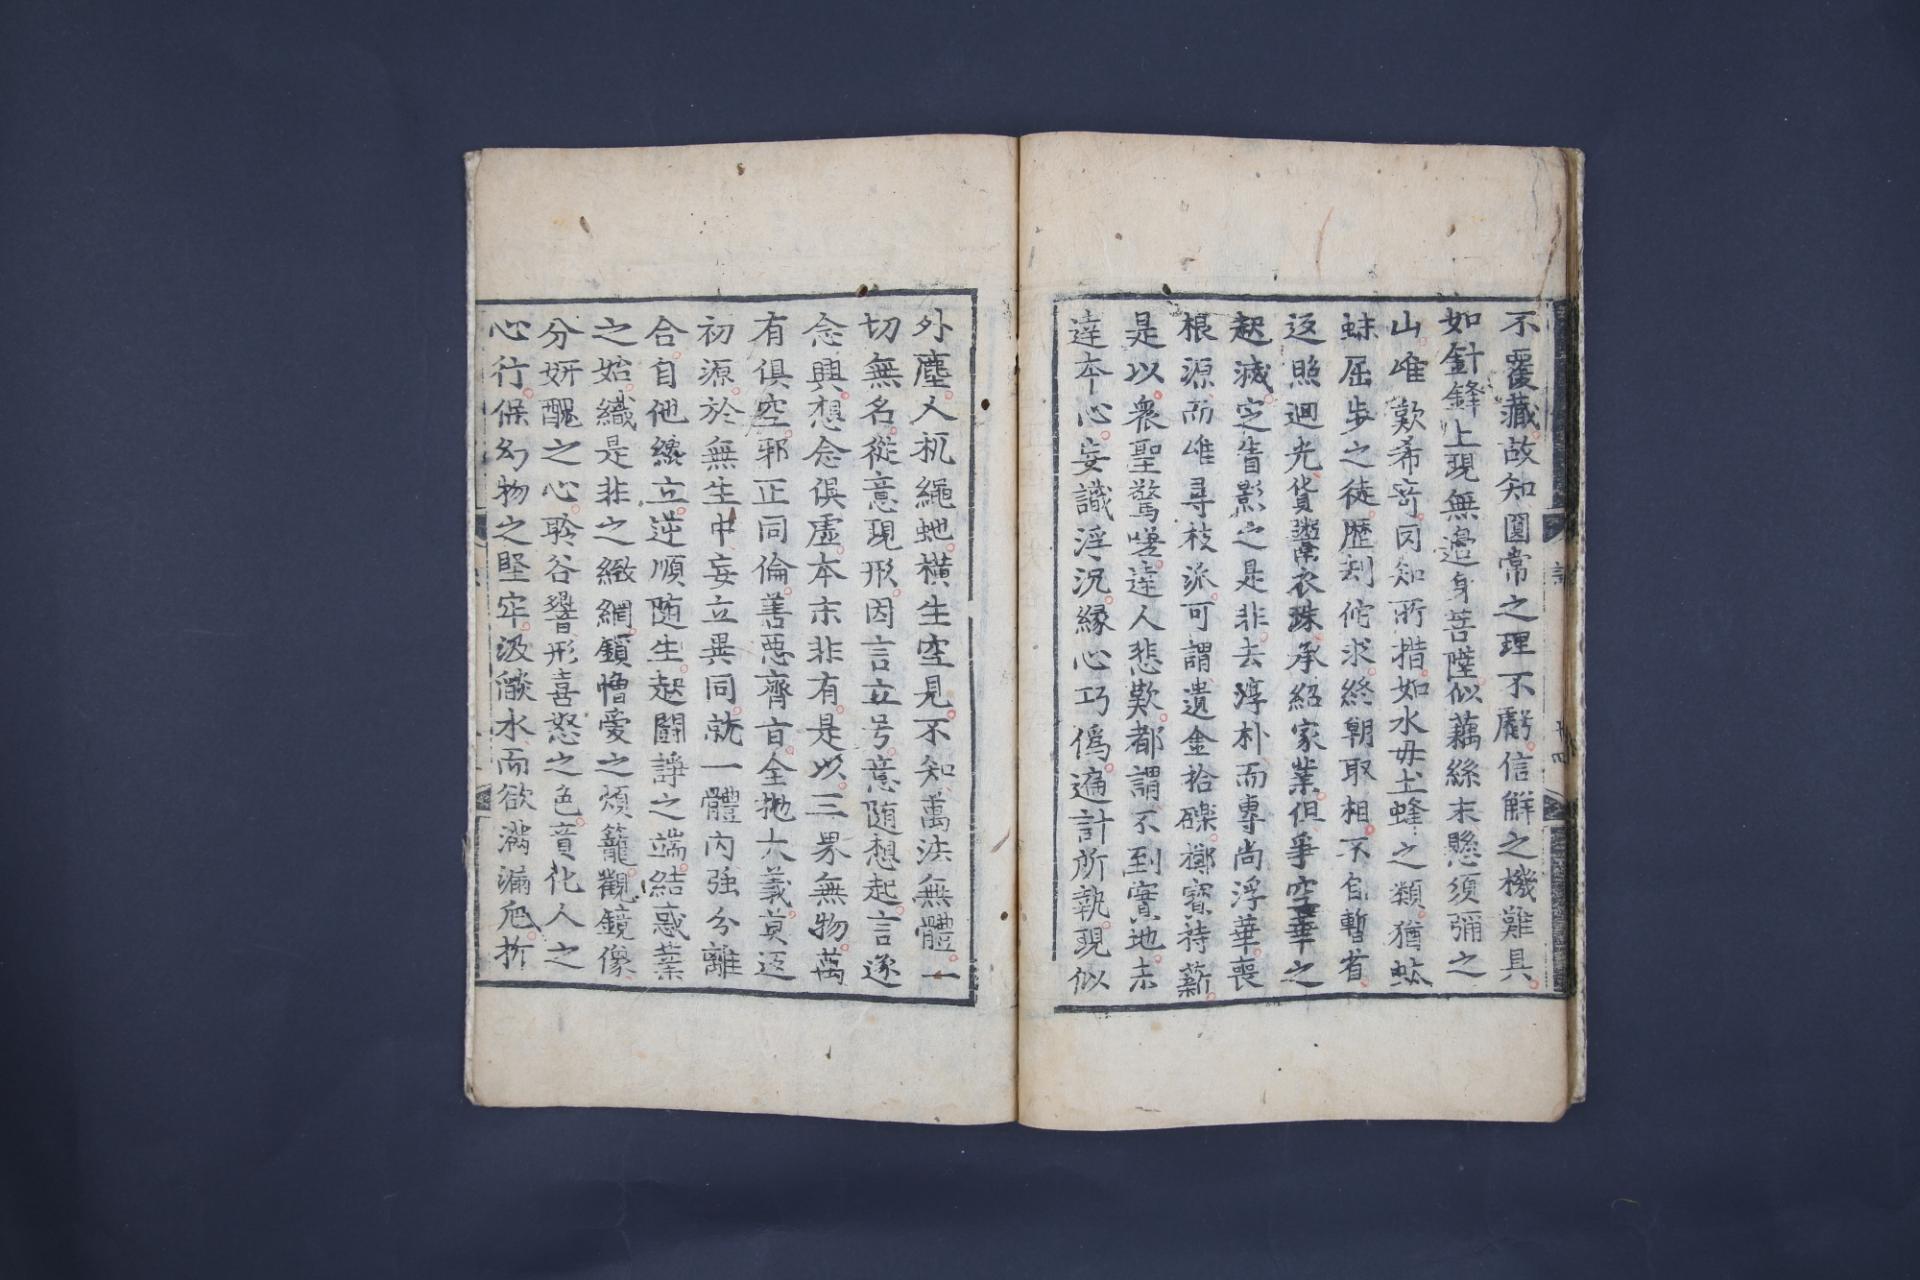 不覆藏故知圓常之理不虧信解之機難具
如針鋒上現無邊身菩薩似藕絲末懸須彌之
山唯歎希奇罔知所措如水母土蜂之類猶蚊
蚋屈步之徒歷刧侘求終朝取相不自暫省
返照迴光貨鬻衣珠承紹家業但爭空華之
起滅定眚影之是非去淳朴而專尚浮華喪
根源而唯尋枝派可謂遺金拾礫擲寳持薪
是以衆聖驚嗟達人悲歎都謂不到實地未
達本心妄識浮沉緣心巧僞遍計所執現似
外塵人机繩虵橫生空見不知萬法無體一
切無名從意現形因言立号意随想起言逐
念興想念俱虛本末非有是以三界無物萬
有俱空邪正同倫善惡齊旨全抛大義莫返
初源於無生中妄立異同就一體内强分離
合自他纔立逆順随生起鬪諍之端結惑業
之始織是非之緻網鎖憎愛之煩籠觀鏡像
分姸醜之心聆谷響形喜怒之色責化人之
心行保幻物之堅牢汲𦦨水而欲滿漏巵折